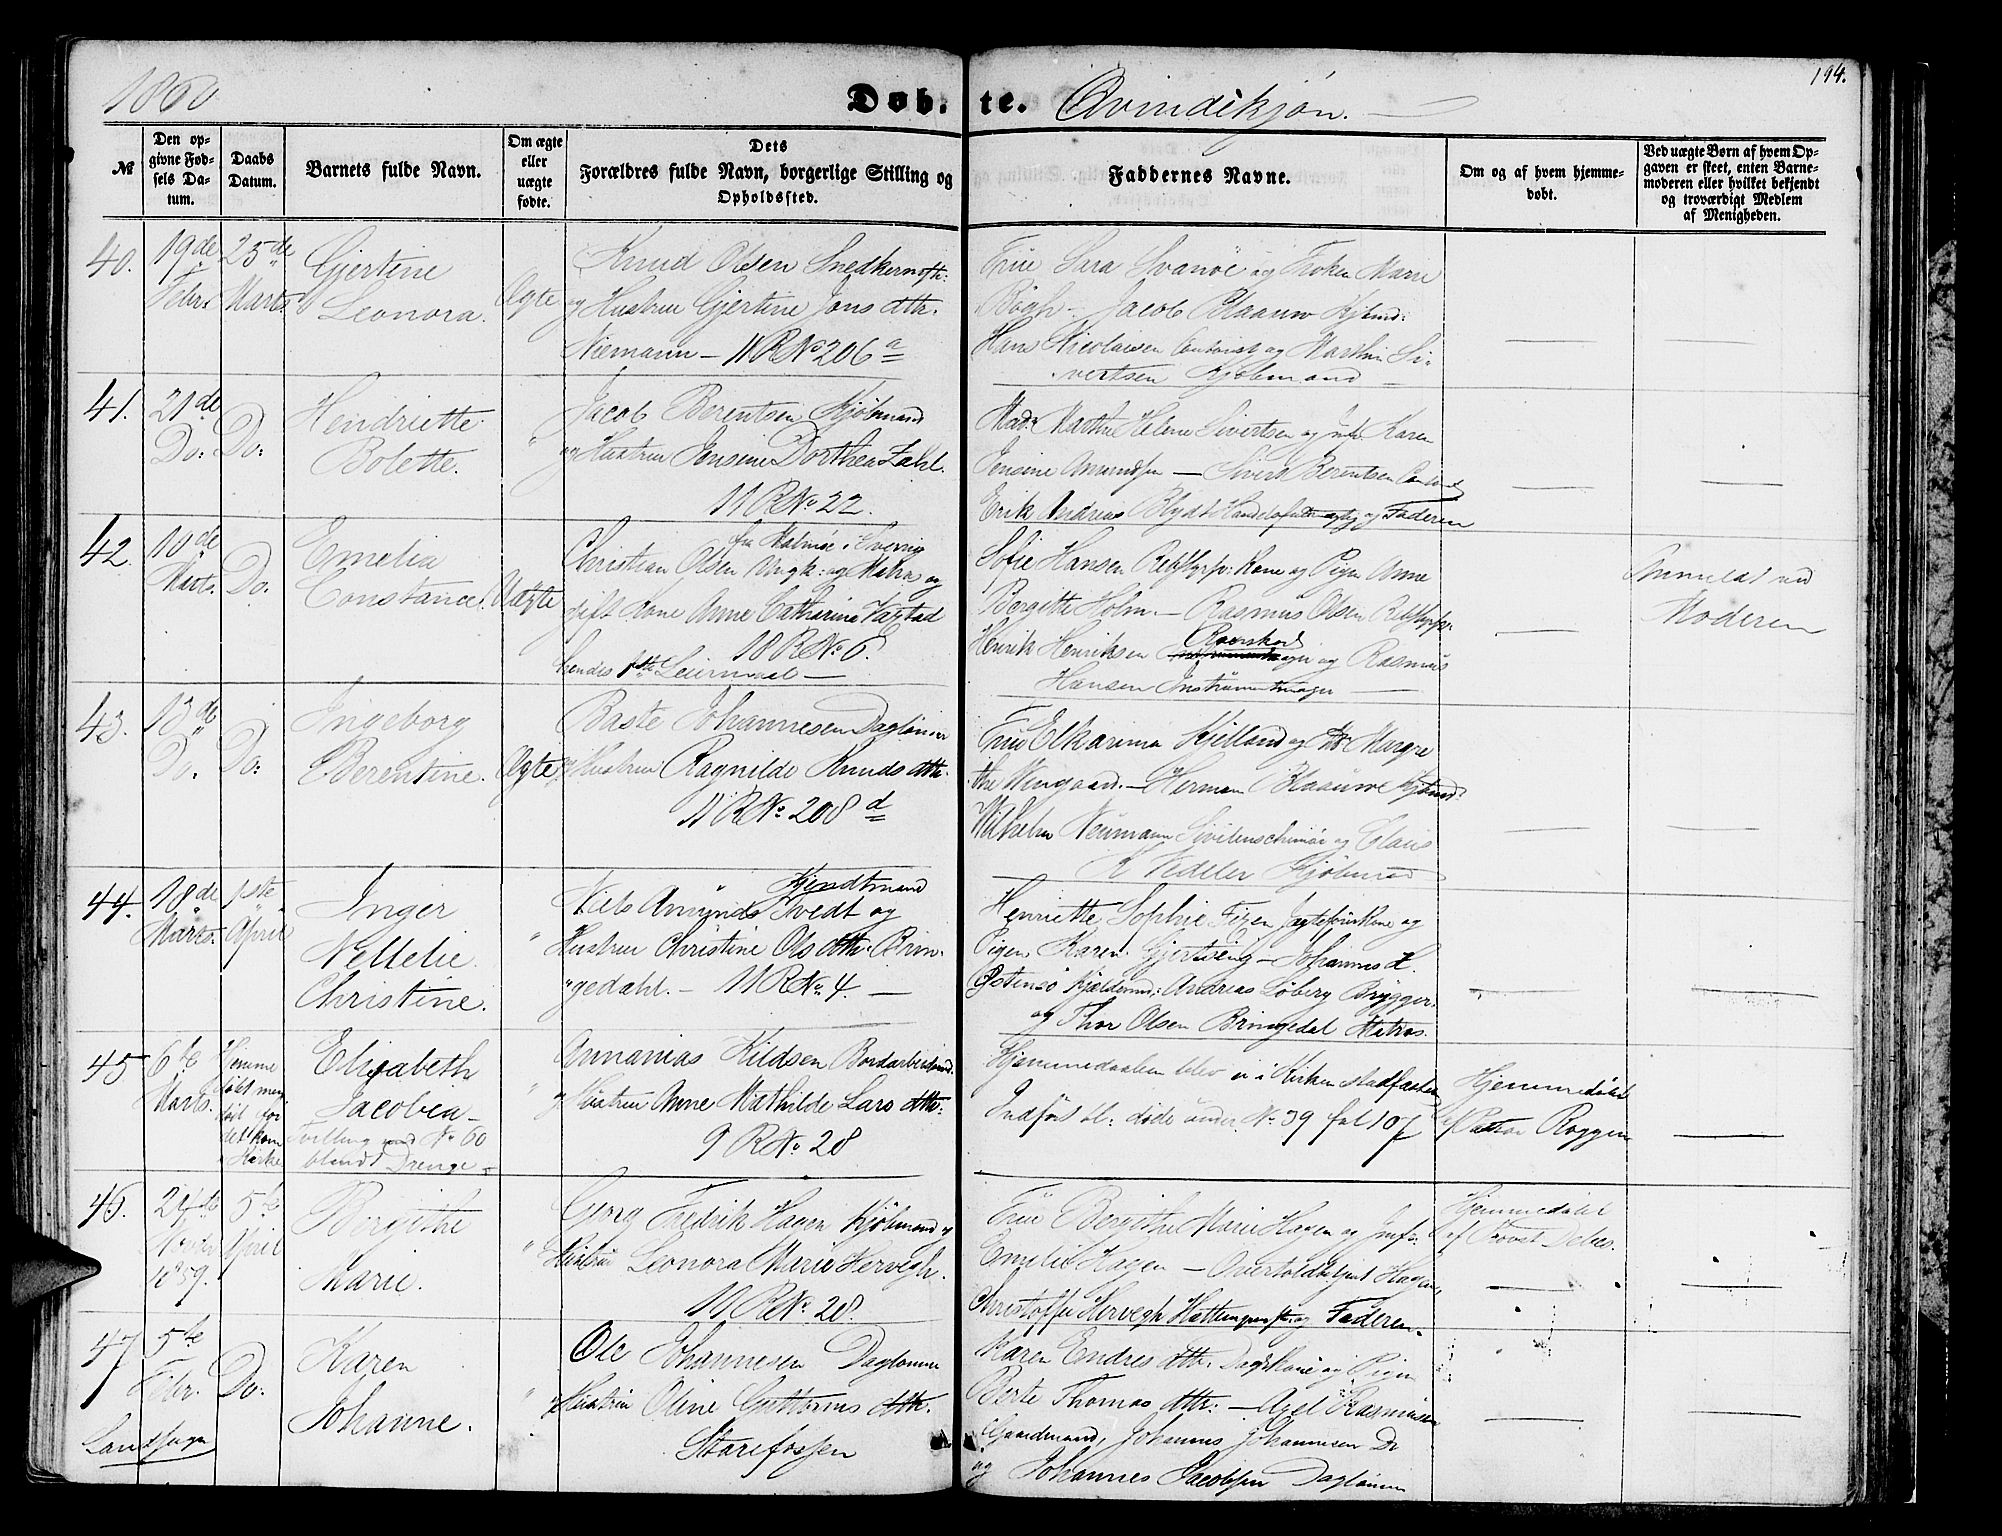 1860
Døb. te. Qvindekjøn.
194.
№
Den op-
givne Fød-
sels Da-
tum.
Daabs
Datum.
Barnets fulde Navn.
Om ægte
eller
uægte
fødte.
Dets
Forældres fulde Navn, borgerlige Stilling og
Opholdssted.
Faddernes Navne.
Om og af hvem hjemme-
døbt.
Ved uægte Børn af hvem Op-
gaven er skeet, enten Barne-
moderen eller hvilket bekjendt
og troværdigt Medlem
af Menigheden.
40.
19de
Febr.
25de
Marts.
Gjertine
Leonora.
Ægte
Knud Olsen Snedker
og Hustru Gjertine Jons dtr.
Niemann – 11 R No 206 a
Frue Sara Svanøe og Frøken Marie
Bøgh – Jacob Blaauw Kjbmd:
Hans Nicolaisen Contorist og Marthin Si-
vertsen Kjøbmand
41.
21de
Do:
Do:
Hendriette
Bolette.
"
Jacob Berentsen Kjøbmand
og Hustru Jensine Dorthea Zahl.
11 R No 22.
Mad: Marthe Helene Sivertsen og Jmfr. Karen
Jensine Amundsen – Sivert Berentsen
Erik Andreas Blydt og Faderen
42.
10de
Marts.
Do:
Emelia
Constance.
Uægte
fra Malmøe i Sverrig
Christian Olsen Ungk: og Matros og
gift Kone Anne Catharine Vagstad
10 R No 6.
hendes 1ste Leiermaal –
Sofie Hansen Kone og Pigen Anne
Bergitte Holm – Rasmus Olsen
Henrik Henriksen og Rasmus
Hansen Instrumentmager
Anmeldt ved
Moderen
43.
13de
Do.
Do:
Ingeborg
Berentine.
Ægte
Baste Johannesen Dagløner
og Hustru Ragnilde Knuds dtr.
11 R No 208 d
Frue Elkanna Kjelland og Margre
the Wengaard. – Herman Blaauw Kjbmd:
Wilhelm Neumann og Claus
K Vedeler Kjøbmand
44.
18de
Marts.
1ste
April
Inger
Nellelie
Christine.
"
Kjendtmand
Niels Amunds Tvedt og
Hustru Christine Ols dtr: Brin-
gedahl. – 11 R No 4. –
Henriette Sophie og
Pigen Karen Gjertvig – Johannes H.
Østensø Andreas Løberg Brygger.
og Thor Olsen Bringedal Matros.
45
6te
Marts.
Hjemme
døbt men
død før
det kom
i Kirke
Elisabeth
Jacobea –
Tvilling med No 60
blandt Drenge –
"
Annanias Kildsen Bordarbeidsmd.
og Hustru Anne Mathilde Lars dtr.
9 R No 28
Hjemmedaaben blev ei i Kirken stadfæstet
Indført bl: døde under No 39 fol 107
Hjemmedøbt
af Pastor Roggen
46.
24de
Novbr
1859.
5te
April
Bergithe
Marie.
"
Georg Fredrik Hagen Kjøbmand og
Hustru Leonora Marie Hervegh.
10 R No 28.
Frue Bergithe Marie Hagen og Jmfr.
Emelie Hagen – Overtoldbetjent Hagen,
Christoffer Hervegh og Faderen.
Hjemmedøbt
af Provst
47
5te
Febr.
Do:
Karen
Johanne.
"
Ole Johannesen Daglønner
og Hustru Oline Guttorms dtr.
Starefossen
Karen Endres dtr. Kone og Pigen
Berte Thomas dtr: – Axel Rasmusen
Gaardmand, Johannes Johannesen Do
og Johannes Jacobsen Dagløner
Landsogn